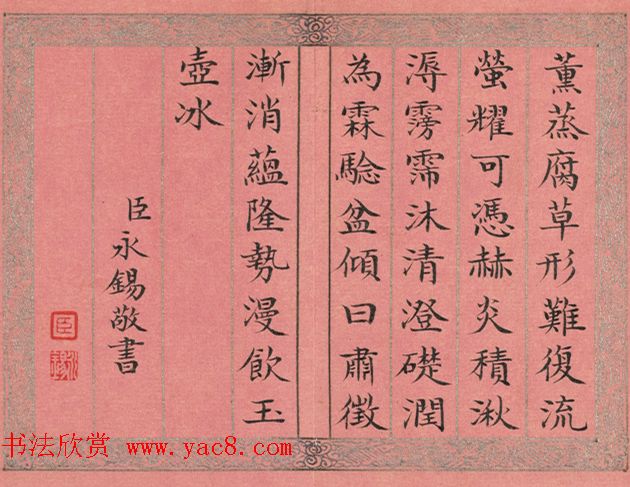 薰蒸腐草形難復流
螢耀可憑赫炎積湫
溽霶霈沐清澄礎潤
為霖騐盆傾曰肅徵
漸消蘊隆勢漫飲玉
壺冰
臣永錫敬書
臣
书法欣赏 www.yac8.com